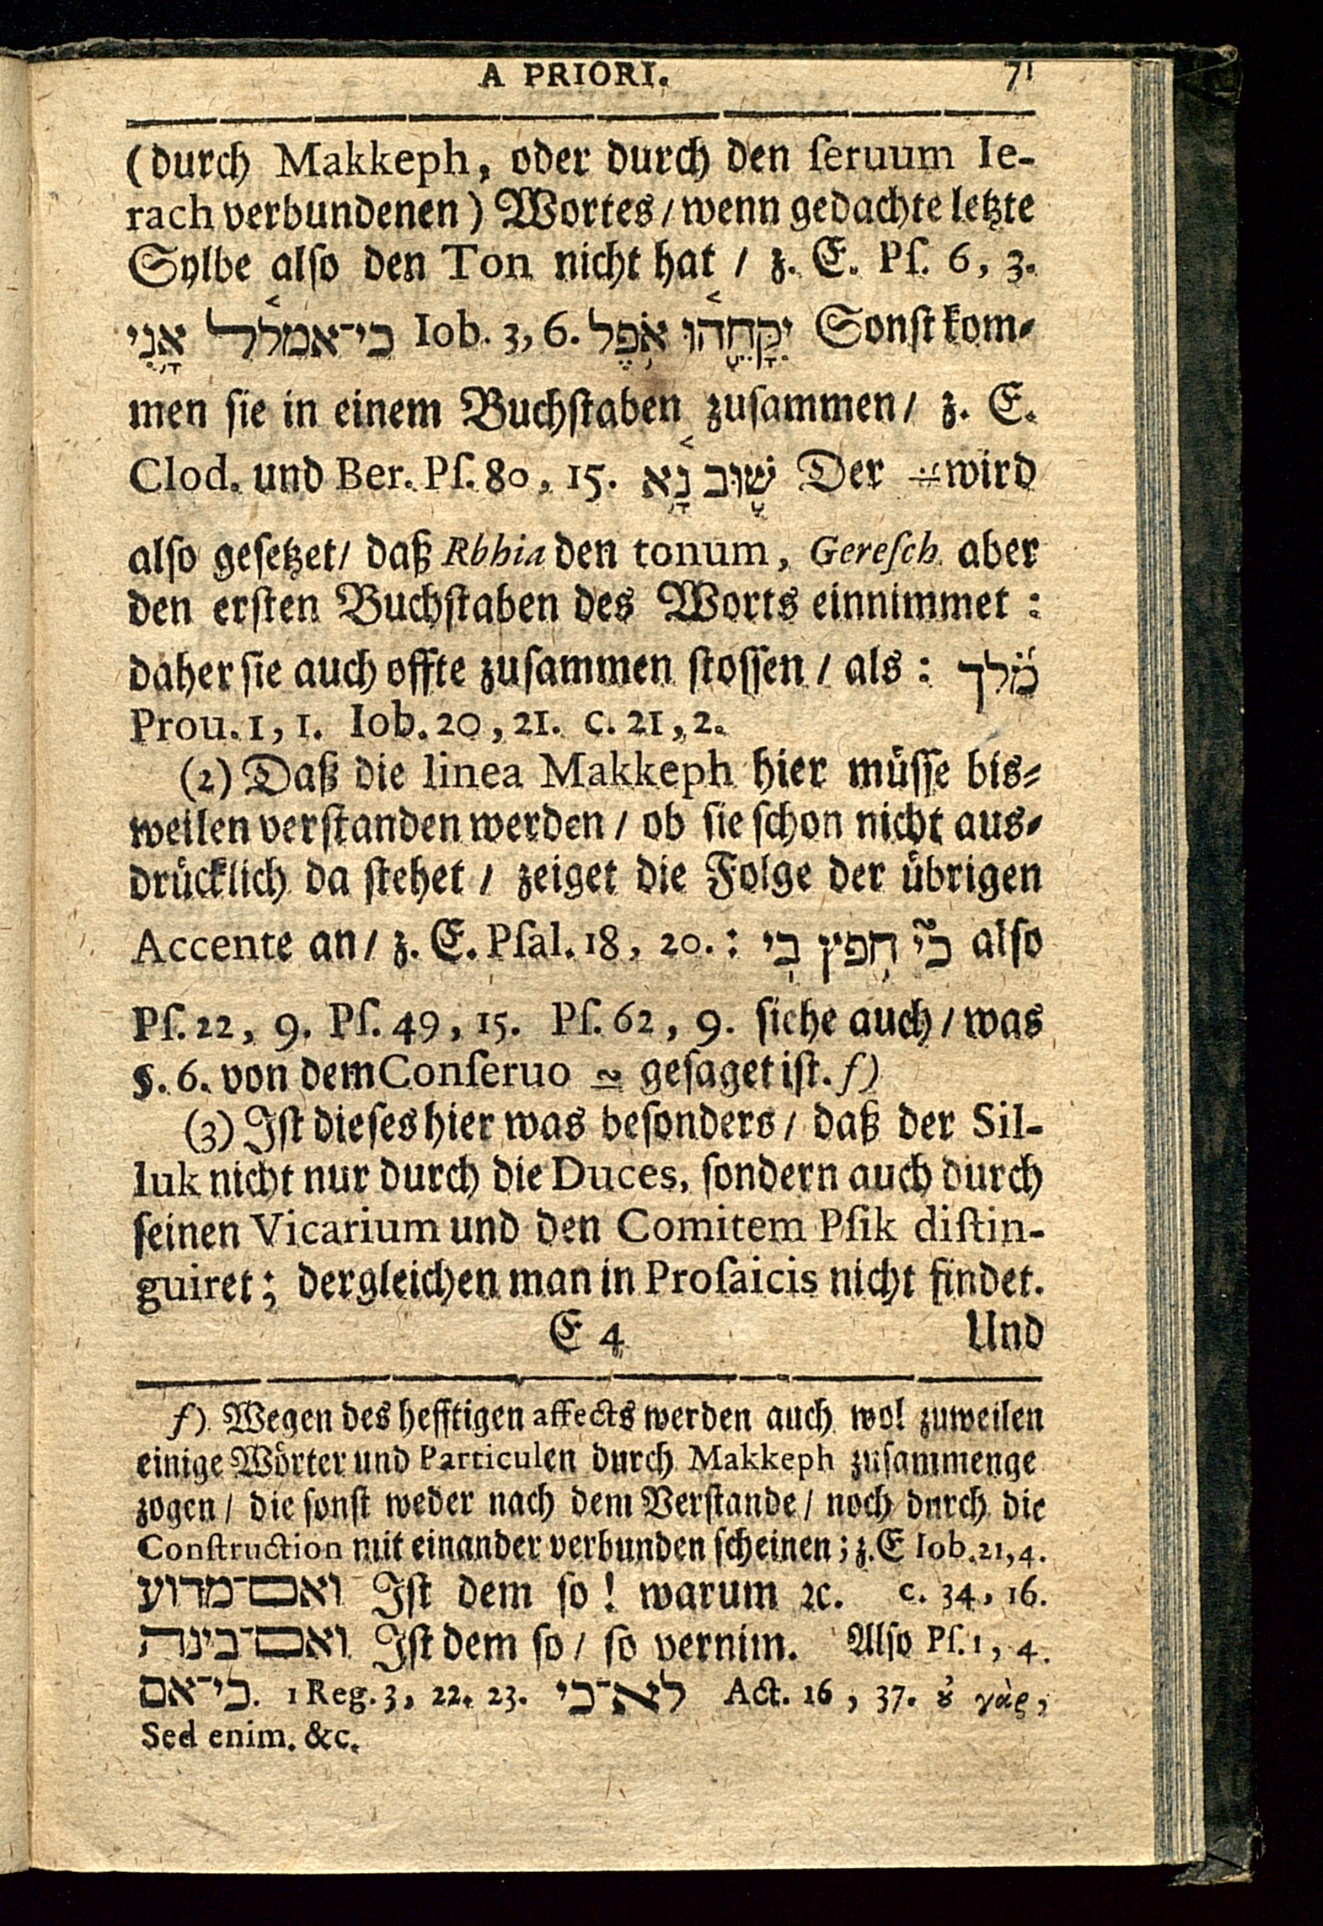 A PRIORI. 71
(durch Makkeph, oder durch den ſeruum Ie-
rach verbundenen) Wortes / wenn gedachte letzte
Sylbe alſo den Ton nicht hat / z. E. Pſ. 6, 3.
כי־אמלל אָנִי Iob. 3, 6. יִקָּחֵהוּ אֹפֶל Sonſt kom-
men ſie in einem Buchſtaben zuſammen / z. E.
Clod. und Ber. Pſ. 80, 15. שׁוּב נָא Der wird
alſo geſetzet / daß Rbhia den tonum, Gereſch aber
den erſten Buchſtaben des Worts einnimmet:
daher ſie auch offte zuſammen ſtoſſen / als: מלך
Prou. 1, 1. Iob. 20, 21. c. 21, 2.
(2) Daß die linea Makkeph hier müſſe bis-
weilen verſtanden werden / ob ſie ſchon nicht aus-
drücklich da ſtehet / zeiget die Folge der übrigen
Accente an / z. E. Pſal. 18, 20.: כי חפץ בי alſo
Pſ. 22, 9. Pſ. 49, 15. Pſ. 62, 9. ſiehe auch / was
§. 6. von dem Conſeruo geſaget iſt. f)
(3) Iſt dieſes hier was beſonders / daß der Sil-
luk nicht nur durch die Duces, ſondern auch durch
ſeinen Vicarium und den Comitem Pſik diſtin-
guiret; dergleichen man in Proſaicis nicht findet.
E 4 Und
f) Wegen des hefftigen affects werden auch wol zuweilen
einige Wörter und Particulen durch Makkeph zuſammenge
zogen / die ſonſt weder nach dem Verſtande / noch durch die
Conſtruction mit einander verbunden ſcheinen; z. E Iob. 21, 4.
ואם־מדוע Iſt dem ſo! warum ꝛc. c. 34, 16.
ואם־בינה Iſt dem ſo / ſo vernim. Alſo Pſ. 1, 4.
כי־אם. 1 Reg. 3, 22. 23. לא־כי Act. 16, 37. ȣ̓ γὰρ,
Sed enim. &c.